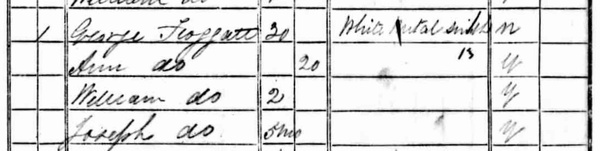 do
1 George Froggatt 30 White Metal Smith n
Ann do 20 13 y
William do 2 y
Joseph do 5mo y